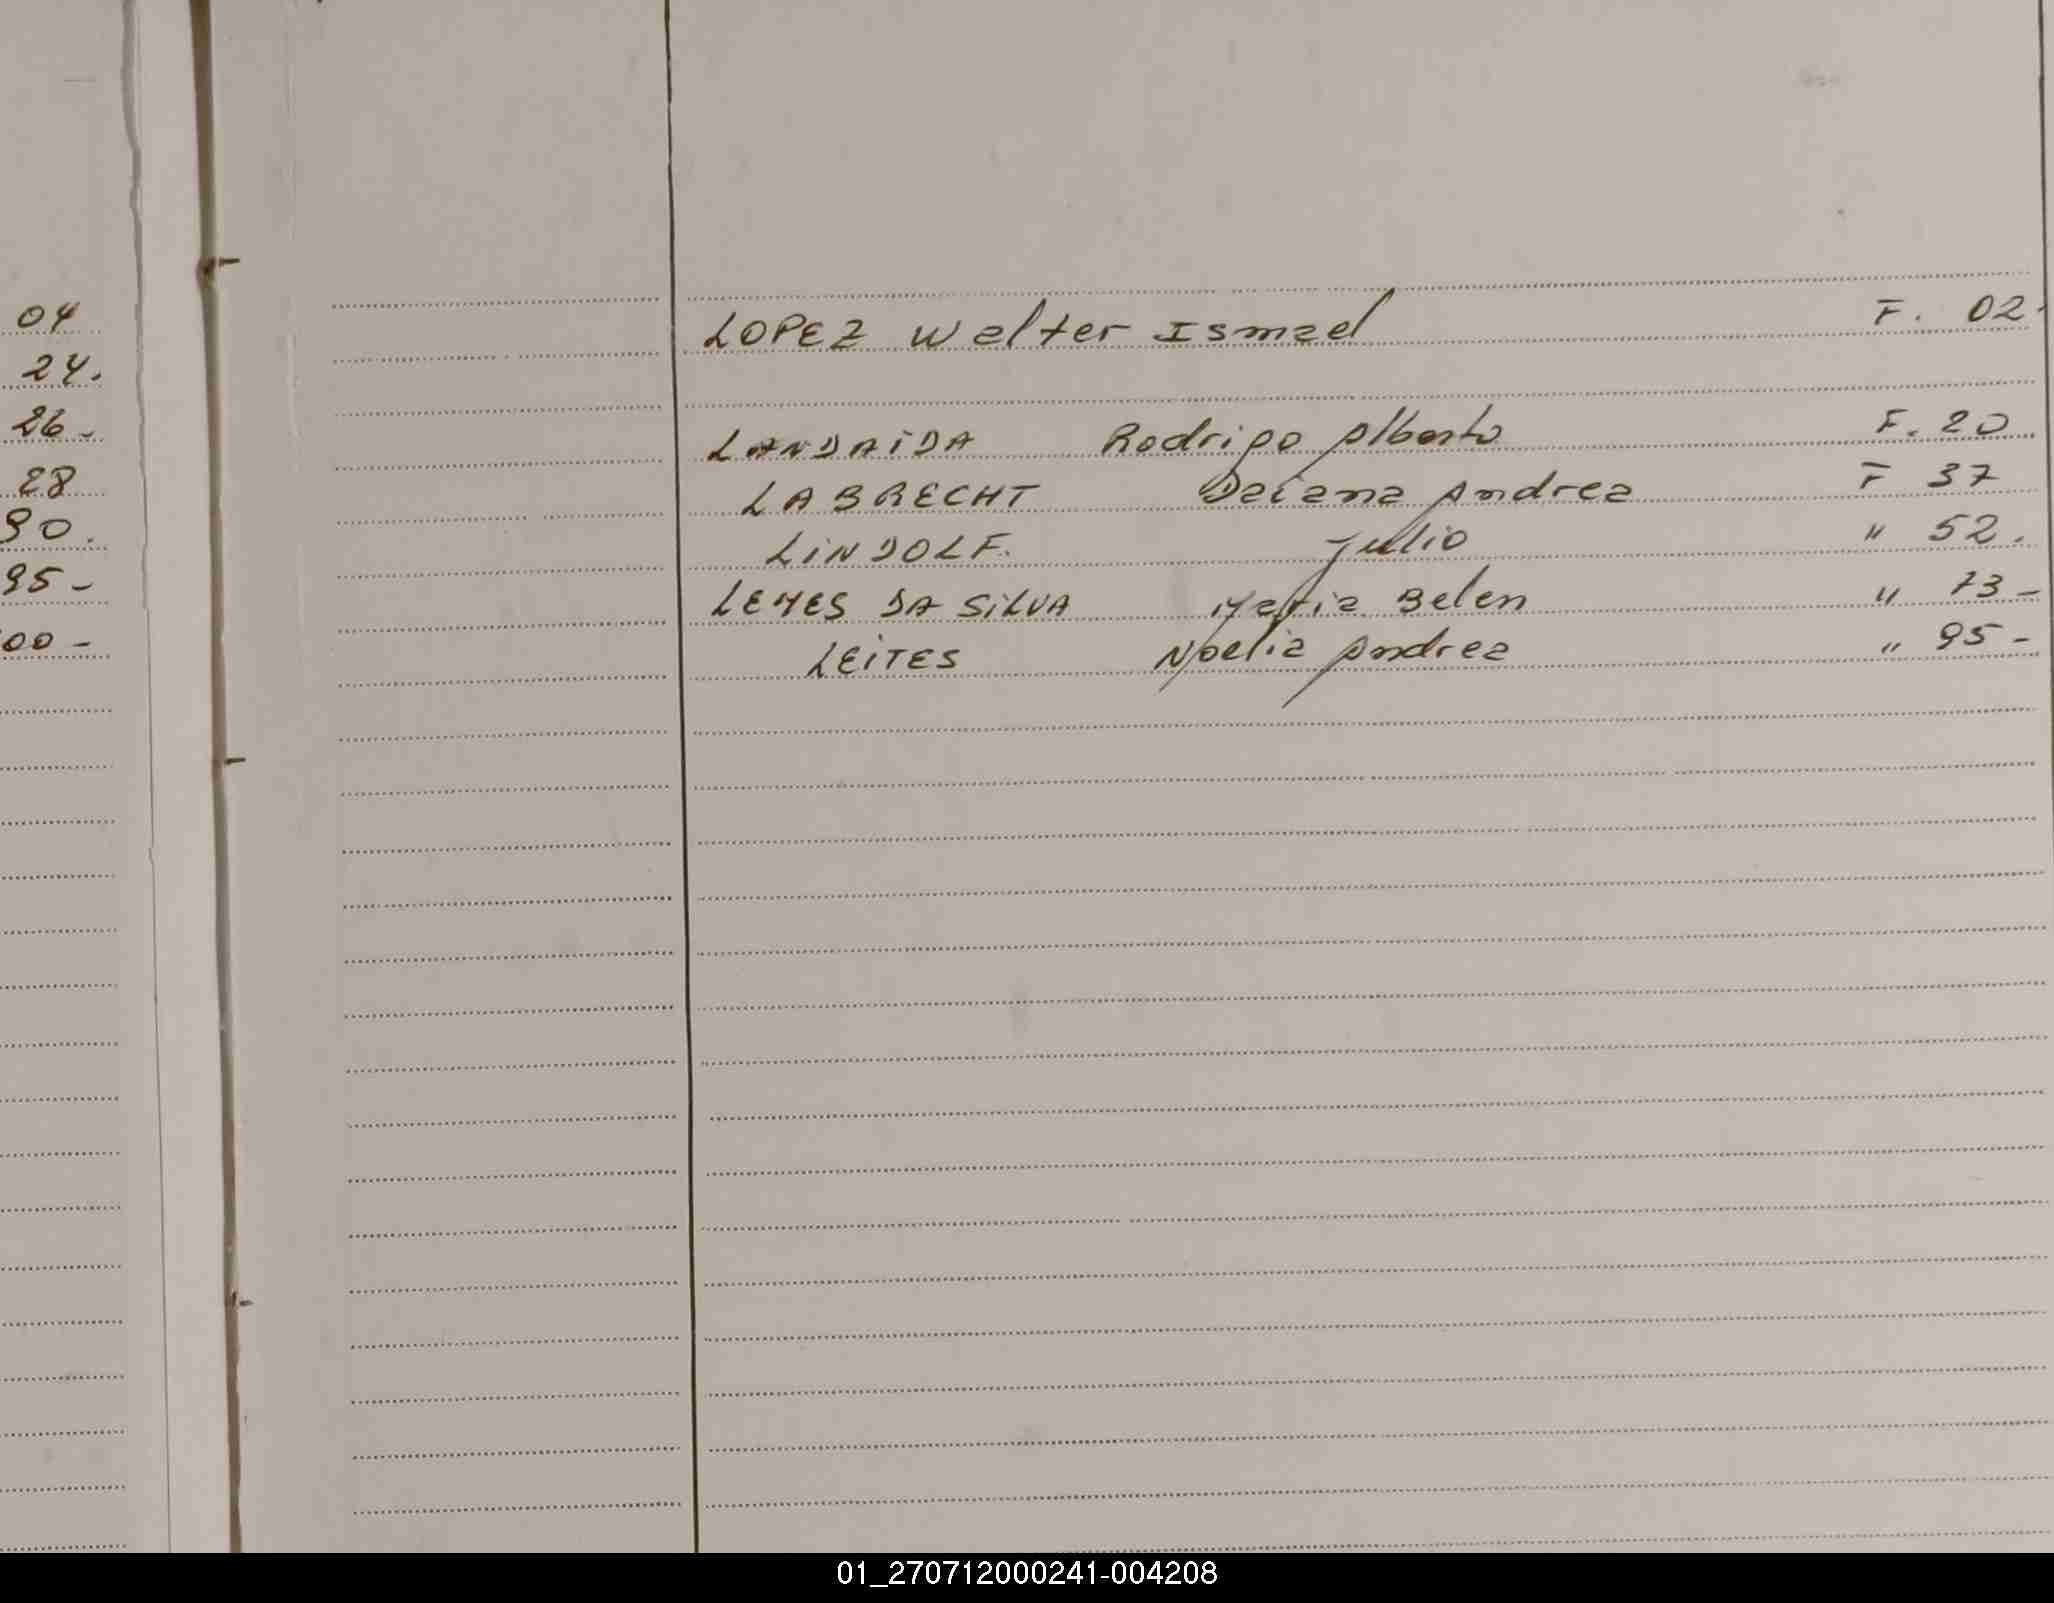 04
24.
26-
28
90.
95-
00-
LOPEZ Walter Ismael F. 02-
LANDAIDA Rodrigo Alberto F. 20
LABRECHT Daiana Andrea F 37
LINDOLF. Julio " 52.
LEMES DA SILVA Maria Belen " 73-
LEITES Noelia Andrea " 95-
01_270712000241-004208